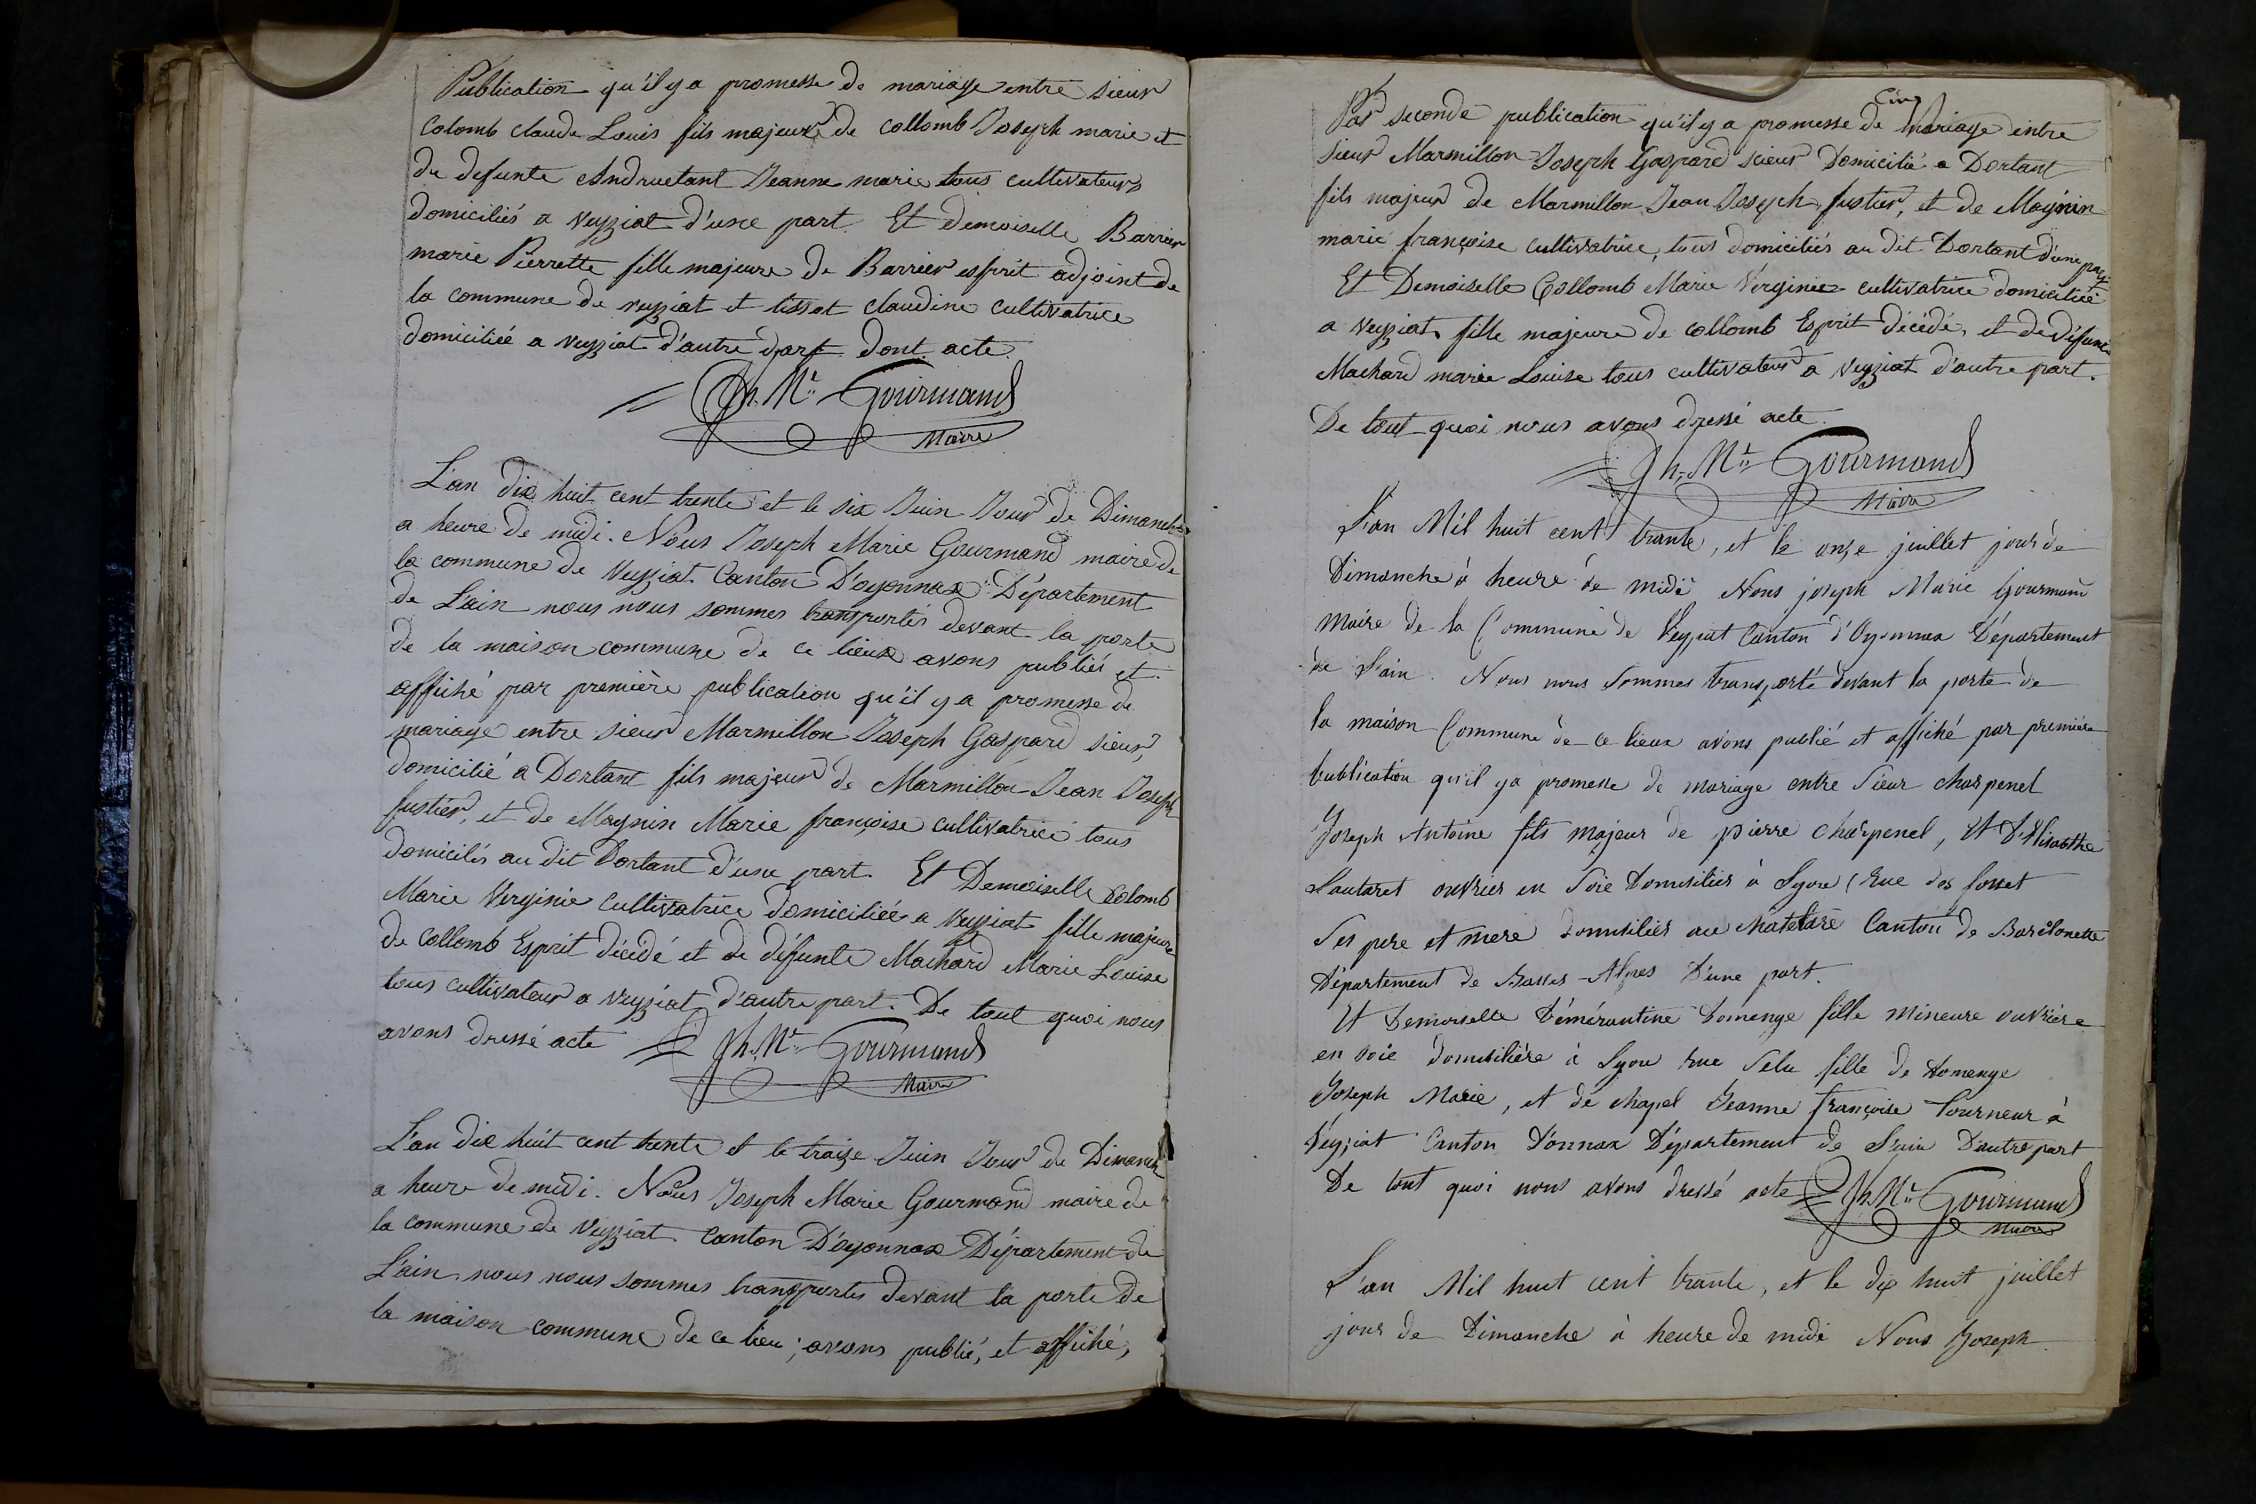 Publication qu'il y a promesse de mariage entre sieur
Colomb claude Louis fils majeur de collomb Joseph marie et
de defunte Andruetant Jeanne marie tous cultivateurs
domiciliés a veyziat d'une part. Et demoiselle Barrier
marie Pierrette fille majeure de Barrier esprit adjoint de
la commune de veyziat et lisset claudine cultivatrice
domiciliée a veyziat d'autre part dont acte.
Jh. Mie Gourmand
Maire
L'an dix huit cent trente et le six Juin Jour de Dimanche
a heure de midi. Nous Joseph Marie Gourmand maire de
la commune de Veyziat Canton D'oyonnax Département
de L'ain nous nous sommes transportés devant la porte
de la maison commune de ce lieux avons publiés et
affiché par première publication qu'il y a promesse de
mariage entre sieur Marmillon Joseph Gaspard sieur,
domicilié a Dortant fils majeur de Marmillon Jean Joseph
fustier, et de Magnin Marie françoise cultivatrice tous
domiciliés au dit Dortant d'une part. Et Demoiselle Colomb
Marie Virginie cultivatrice domiciliée a veyziat fille majeure
de Collomb Esprit décédé et de défunte Machard Marie Louise
tous cultivateur a veyziat d'autre part. De tout quoi nous
avons dressé acte Jh. Mie Gourmand
Maire
L'an dix huit cent trente et le traize Juin Jour de Dimanche
a heure de midi. Nous Joseph Marie Gourmand maire de
la commune de Veyziat Canton D'oyonnax Département de
L'ain nous nous sommes transportés devant la porte de
la maison commune de ce lieu; avons publié, et affiché,
Cinq
Par seconde publication qu'il y a promesse de mariage entre
sieur Marmillon Joseph Gaspard scieur Domicilié a Dortant
fils majeur de Marmillon Jean Joseph fustier, et de Magnin
marie françoise cultivatrice, tous domiciliés au dit Dortant d'une part
Et Demoiselle Collomb Marie Virginie cultivatrice domiciliée
a veyziat fille majeure de collomb Esprit décédé, et de défunte
Machard marie Louise tous cultivateur a veyziat d'autre part.
De tout quoi nous avons dressé acte.
Jh. Mie Gourmand
Maire
L'an Mil huit cent trante, et le onze juillet jour de
Dimanche à heure de midi Nous joseph Marie Gourmand
Maire de la Commune de Veyziat Canton d'Oyonnax Département
de L'ain. Nous nous sommes transporté devant la porte de
la maison Commune de ce lieux avons publié et affiché par première
publication qu'il ya promesse de mariage entre Sieur Charpenel
Joseph Antoine fils Majeur de pierre Charpenel, et D'Elisabthe
Lautaret ouvrier en Soie Domisiliés à Lyon (Rue des fosset
Ses pere et mere domisiliés au Chatelare Canton de Barcilonette
Département de Basses-Alpes D'une part.
Et Demoiselle Démérantine Domenge fille Mineure ouvrière
en soie domisilière à Lyon rue Sela fille de Domenge
Joseph Marie, et de Chapel Jeanne françoise Tourneur à
Veyziat Canton D'onnax Département de L'ain D'autre part
De tout quoi nous avons dressé acte Jh. Mie Gourmand
Maire
L'an Mil huit cent trante, et le dix huit juillet
jour de Dimanche à heure de midi Nous Joseph